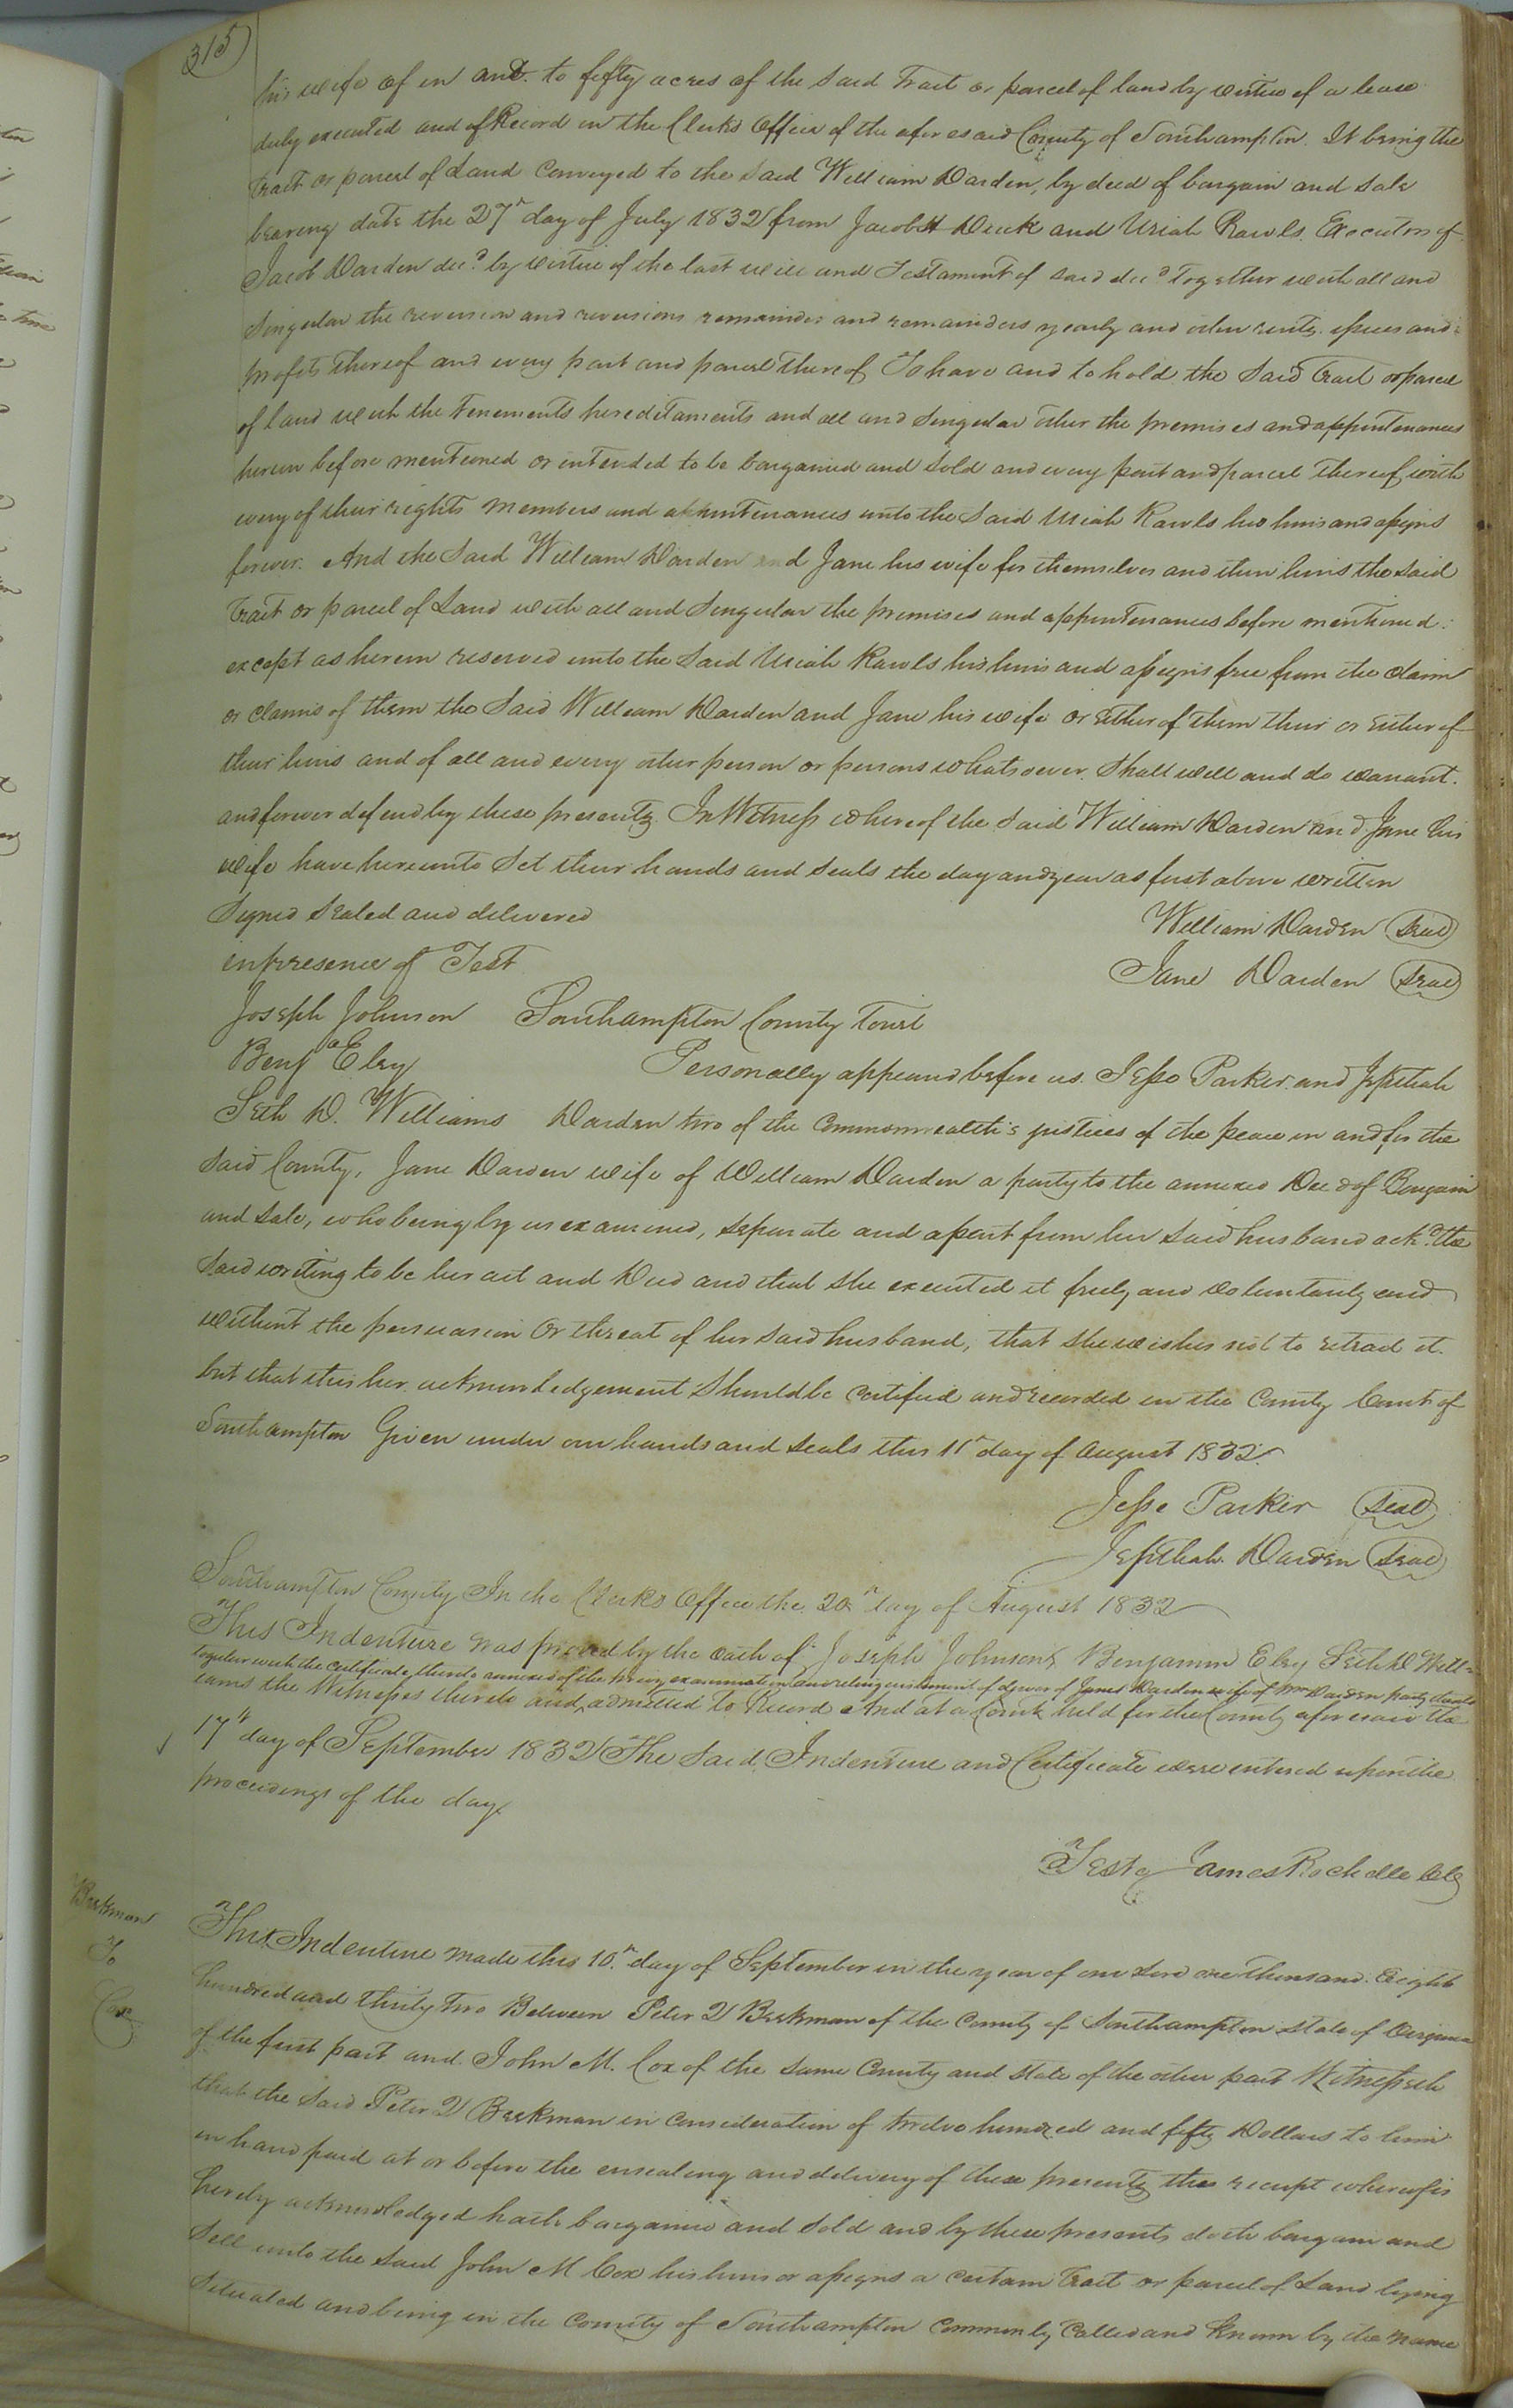 315
his wife of in and to fifty acres of the said Tract or parcel of land by virtue of a lease
duly executed and of Record in the Clerks Office of the aforesaid County of Southampton. It being the
Tract or parcel of Land Conveyed to the said William Darden, by deed of bargain and sale
bearing date the 27th day of July 1832 from Jacob H Duck and Uriah Rawls Executors of
Jacob Darden decd by virtue of the last will and Testament of said decd together with all and
Singular the reversion and reversions remainder and remainders yearly and other rents issues and
profits thereof and every part and parcel thereof To have and to hold the said Tract or parcel
of land with the tenements hereditaments and all and singular other the premises and appurtenances
herein before mentioned or intended to be bargained and sold and every part and parcel thereof with
every of their rights members and appurtenances unto the said Uriah Rawls his heirs and assigns
forever. And the said William Darden and Jane his wife for themselves and their heirs the said
Tract or parcel of Land with all and singular the premises and appurtenances before mentioned
except as herein reserved unto the said Uriah Rawls his heirs and assigns free from the claim
or claims of them the said William Darden and Jane his wife or either of them their or either of
their heirs and of all and every other person or persons whatsoever. Shall will and do warrant
and forever defend by these presents In Witness whereof the said William Darden and Jane his
wife have hereunto set their hands and seals the day and year as first above written
Signed Sealed and delivered
William Darden Seal
in presence of Test
Jane Darden Seal
Joseph Johnson Southampton County Towit
Benja Eley Personally appeared before us Jesse Parker and Jepthah
Seth D. Williams Darden two of the Commonwealth's justices of the peace in and for the
said County, Jane Darden wife of William Darden a party to the annexed Deed of Bargain
and Sale, who being by us examined, separate and apart from her said husband ackd the
said writing to be her act and Deed and that she executed it freely and voluntarily and
without the persuasion Or threat of her said husband, that she wishes not to retract it
but that this her acknowledgement Should be certified and recorded in the County Court of
Southampton Given under our hands and seals this 11th day of August 1832
Jesse Parker Seal
Jepthah Darden Seal
Southampton County In the Clerks Office the 20th day of August 1832
This Indenture was proved by the oath of Joseph Johnson, Benjamin Eley Seth D Will=
together with the certificate thereto annexed of the privy examination and relinquishment of dower of Jane Darden wife of Wm Darden party thereto
iams the Witnesses thereto and admitted to Record And at a Court held for the County aforesaid the
17th day of September 1832 The said Indenture and Certificate were entered upon the
proceedings of the day.
Teste James Rochelle Clk
Beekman
To
Cox
This Indenture made this 10th day of September in the year of our Lord one thousand Eight
hundred and thirty two Between Peter D Beekman of the County of Southampton state of Virginia
of the first part and John M. Cox of the same County and state of the other part Witnesseth
that the said Peter D Beekman in consideration of twelve hundred and fifty Dollars to him
in hand paid at or before the ensealing and delivery of these presents the receipt whereof is
hereby acknowledged hath bargained and sold and by these presents doth bargain and
Sell unto the said John M Cox his heirs or assigns a certain Tract or parcel of Land lying
situated and being in the County of Southampton Commonly Called and Known by the name